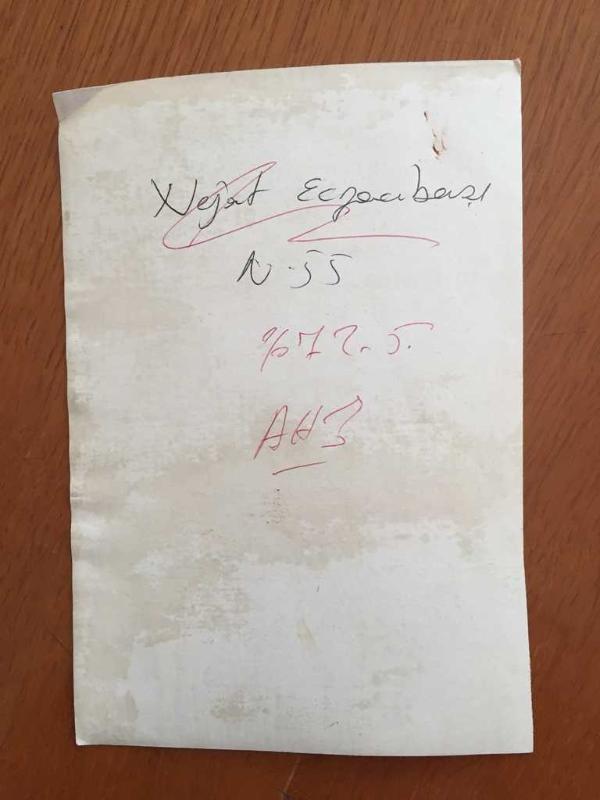 Nejat Eczacıbaşı
N-55
%72.5.